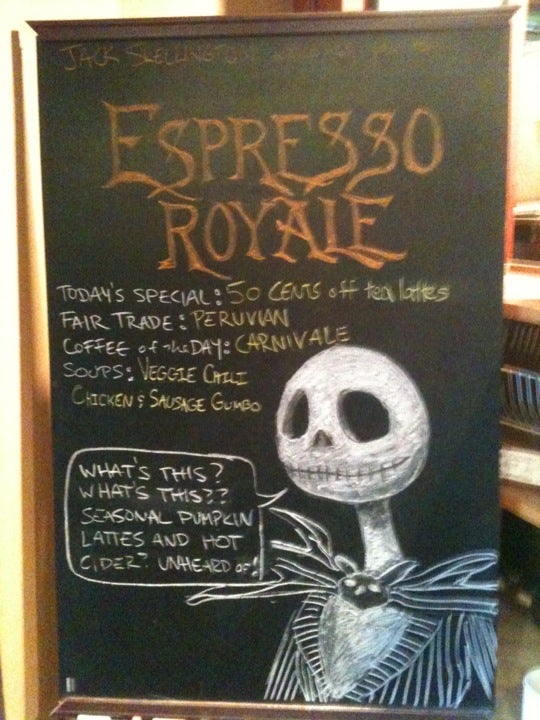 JACK SKELLINGTON
ESPRESSO
ROYALE
TODAY'S SPECIAL: 50 CENTS off tea lattes
FAIR TRADE: PERUVIAN
COFFEE of the DAY: CARNIVALE
SOUPS: VEGGIE CHILI
CHICKEN & SAUSAGE GUMBO
WHAT'S THIS?
WHAT'S THIS??
SEASONAL PUMPKIN
LATTES AND HOT
CIDER? UNHEARD OF!